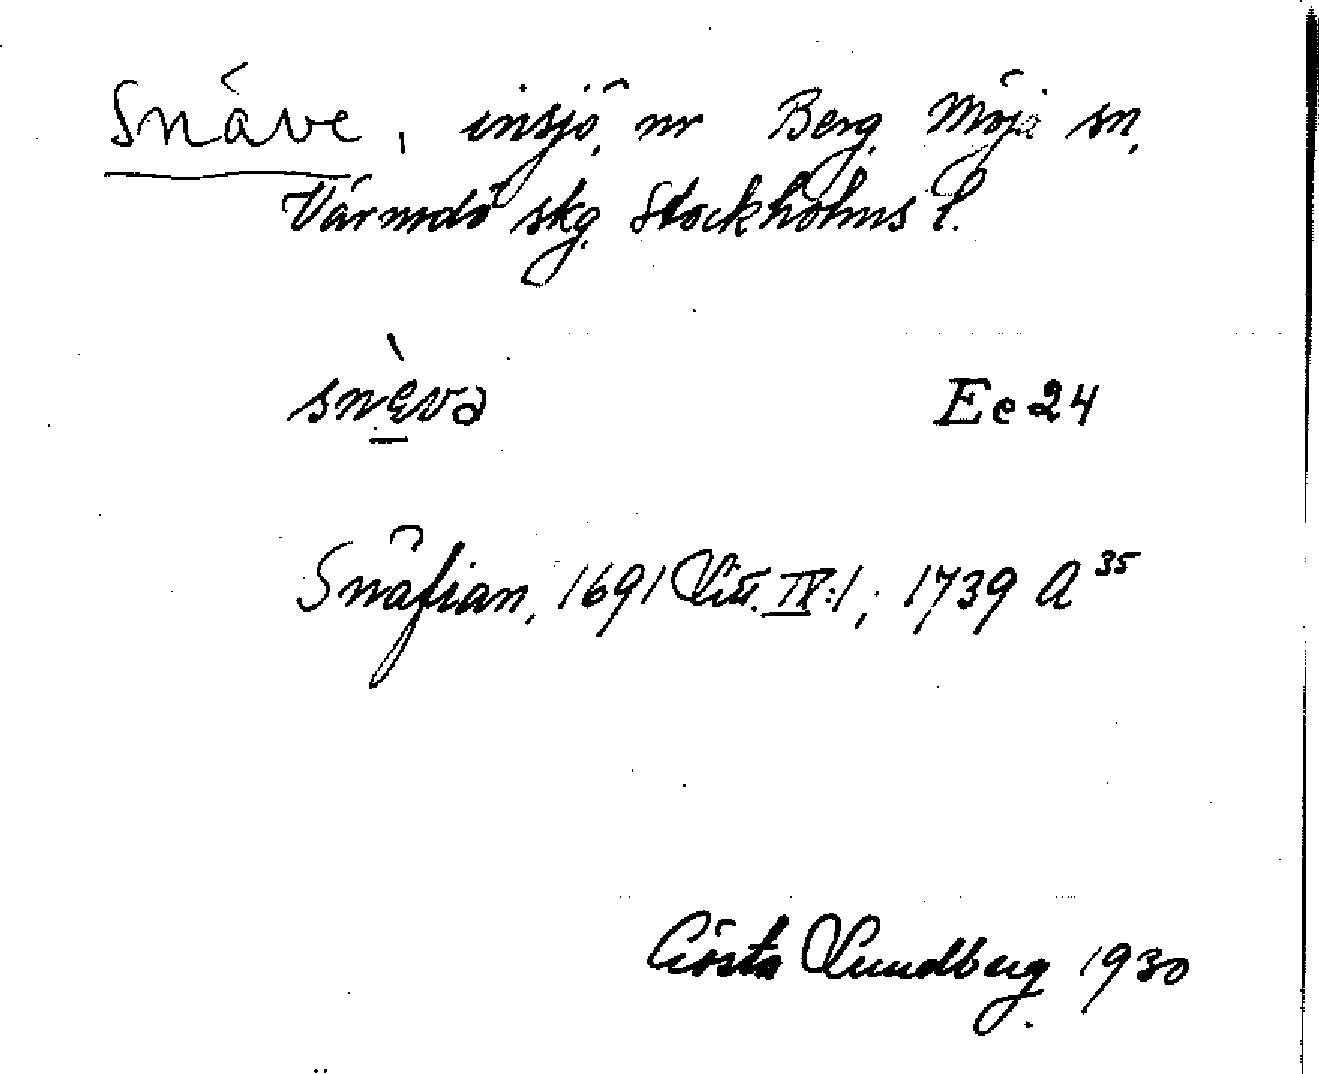 Snäve, insjö, nr Berg, Möja sn,
Värmdö skg. Stockholms l.
snèvə Ee 24
Snäfian, 1691 Litt. IV:1; 1739 A 35
Gösta Lundberg 1930